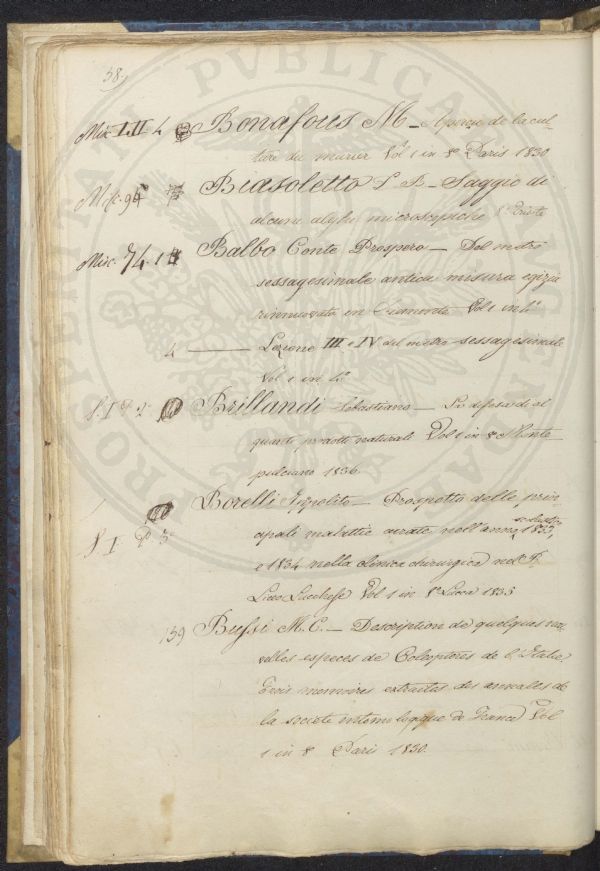 58.
Mis. I.II 4 Bonafous M — Aperçu de la cul-
ture du murier Vol 1 in 8° Paris 1830
Misc. 94 Biasoletto B — Saggio di
alcune alghe microscopiche Trieste
Misc. 74.1 Balbo Conte Prospero — Del metro
sessagesimale antica misura egizia
rinnovata in Piemonte Vol 1 in 4°
4 — Lezione III e IV del metro sessagesimale
Vol 1 in 4°
S. I P. 2 Brillandi Sebastiano — La difesa di al
quanti prodotti naturali Vol 1 in 8° Monte
pulciano 1836
Borelli Ippolito — Prospetto delle prin-
scolastico
S. I P. 3 cipali malattie curate nell'anno 1833,
e 1834 nella clinica chirurgica nel R.
Liceo Lucchese Vol 1 in 8° Lucca 1835
139 Bussi M. C. — Description de quelques no
velles especes de Coleopteres de l'Italie.
Trois memoires extraites des annales de
la societe entomologique de France Vol
1 in 8° Paris 1830.